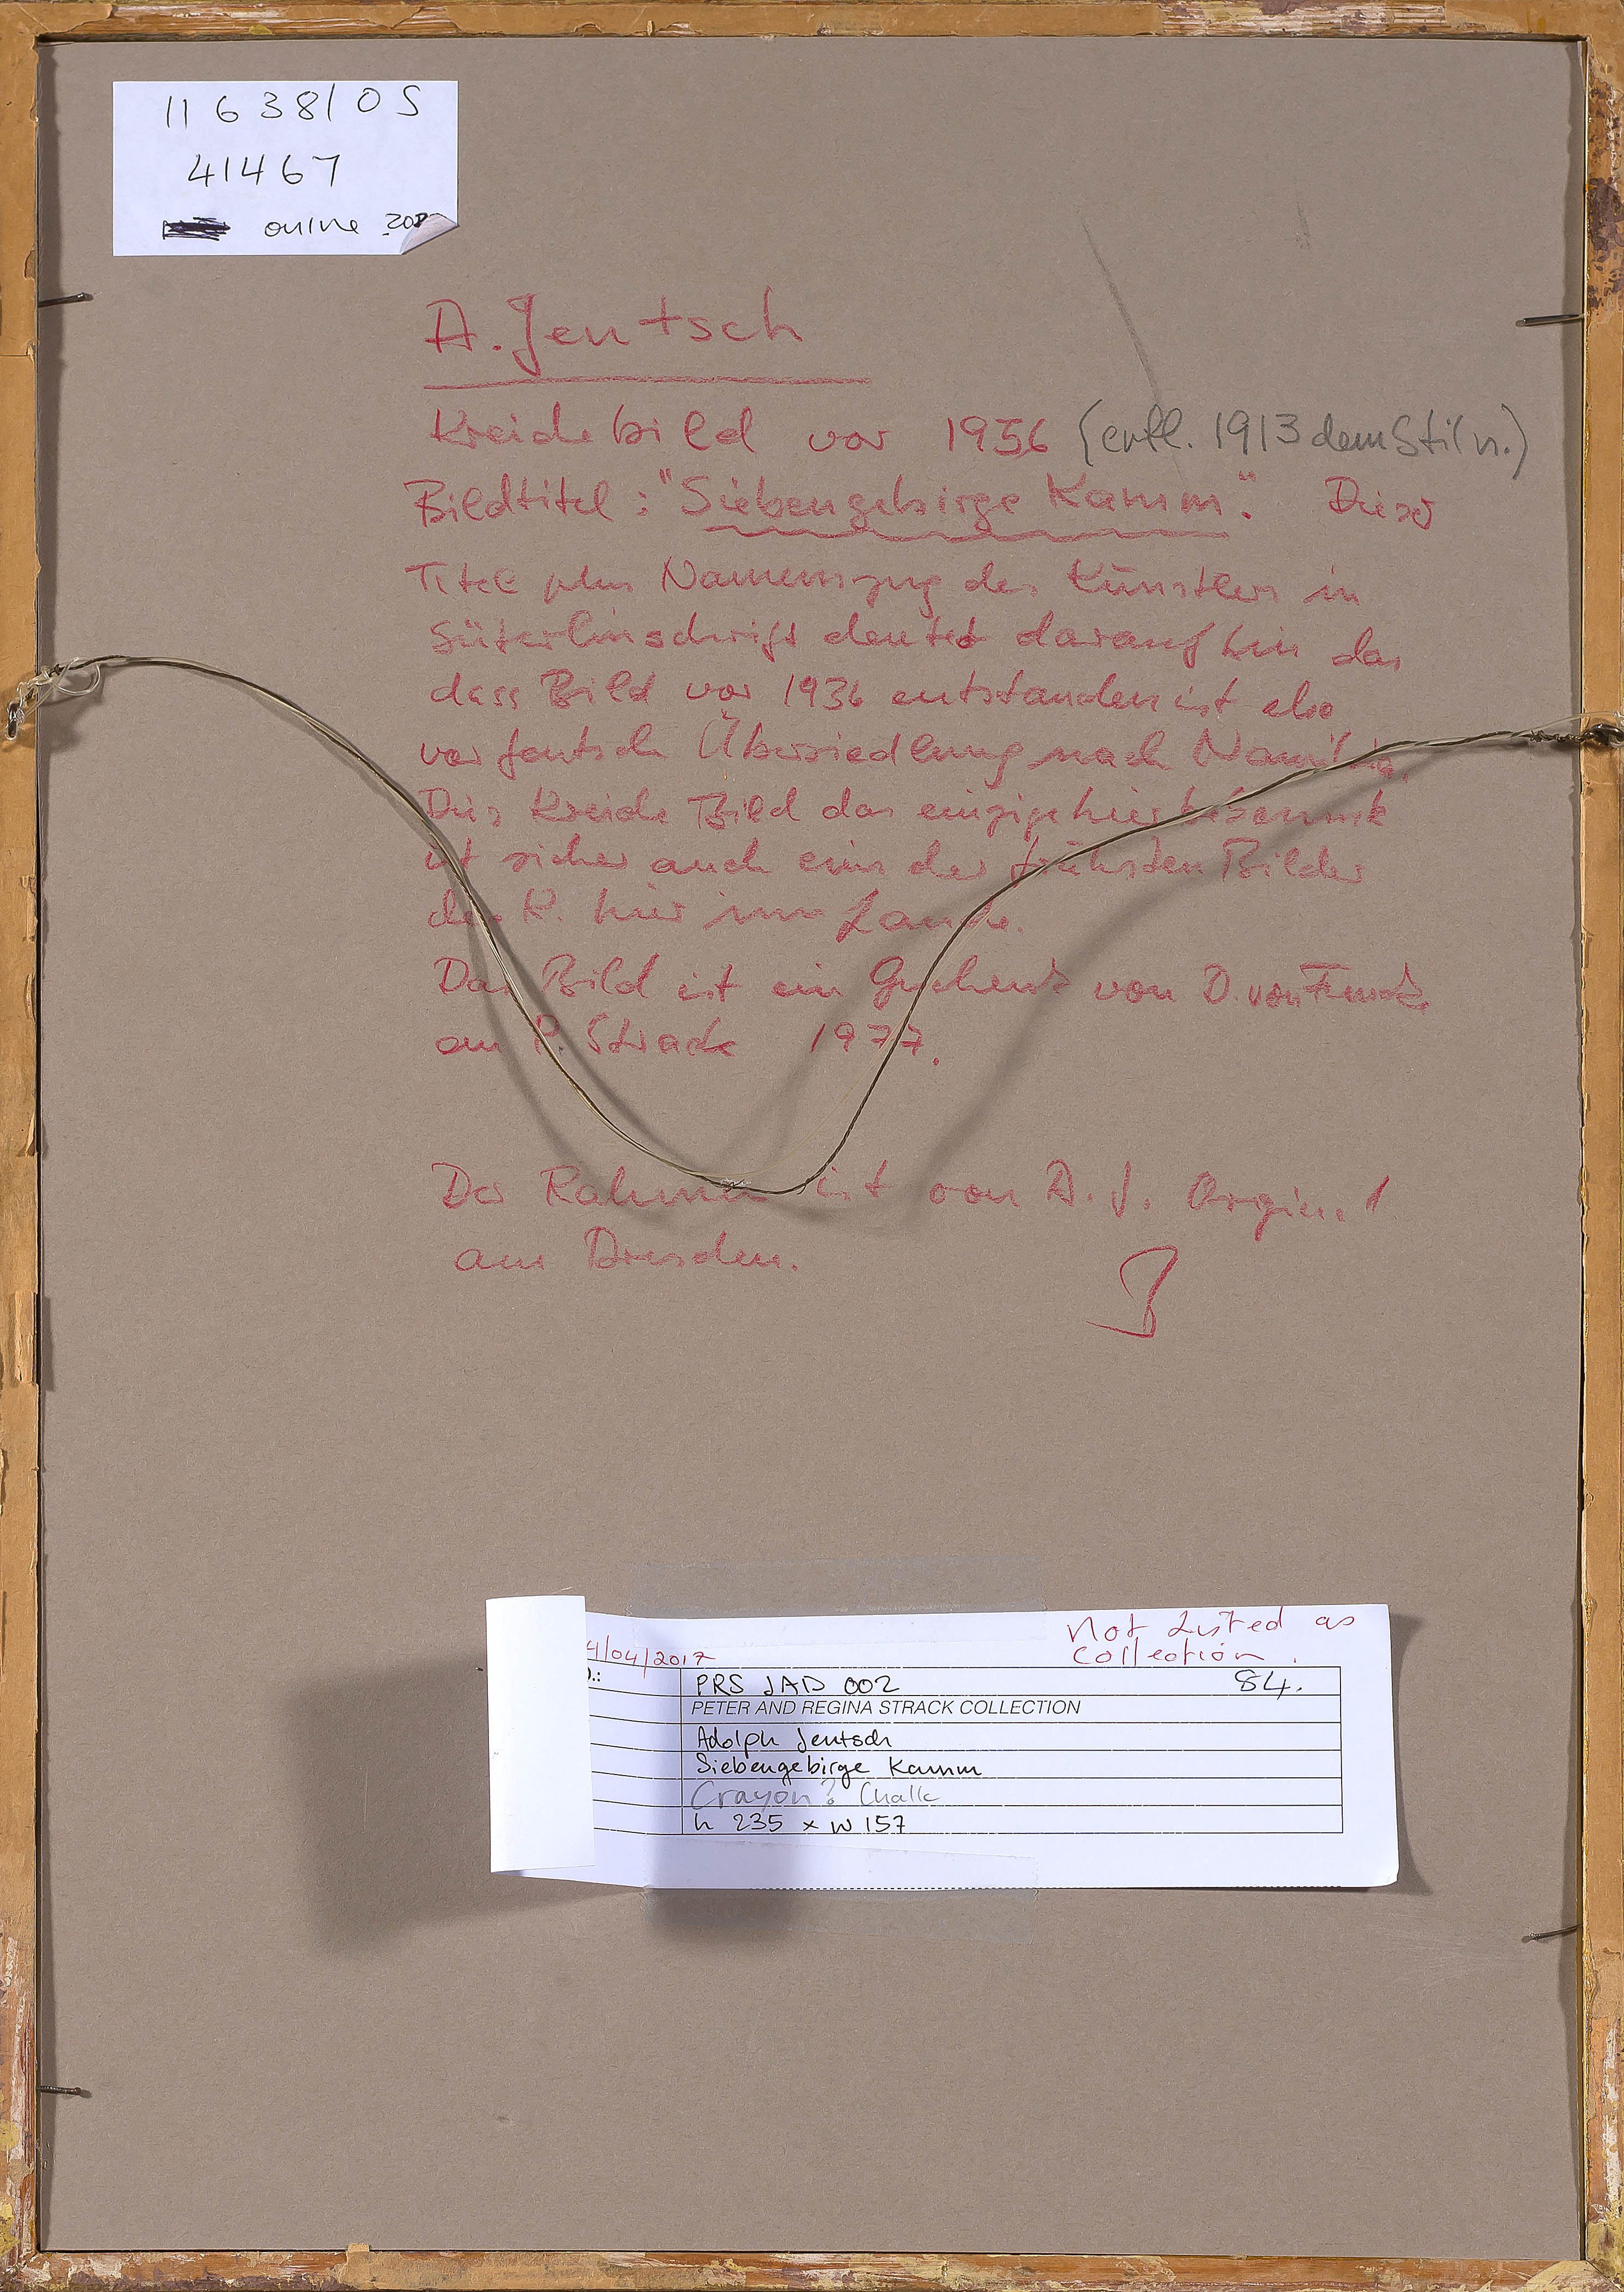 11638/05
41467
online
A. Jentsch
Kreidebild vor 1936 (evtl. 1913 dem Stil n.)
Bildtitel: "Siebengebirge Kamm". Dieser
Titel plus Namenszug des Künstlers in
Süterlinschrift deutet darauf hin das
dass Bild vor 1936 entstanden ist also
vor Jentsch Übersiedlung nach Namibia.
Dies Kreide Bild das einzige hier bekannte
ist sicher auch eins der frühsten Bilder
des K. hier im Lande.
Das Bild ist ein Geschenk von D. von Funck
an P. Strack 1977.
Der Rahmen ist von A. J. Orginal
aus Dresden.
4/04/2017
Not Listed as
collection.
PRS JAD 002 84.
PETER AND REGINA STRACK COLLECTION
Adolph Jentsch
Siebengebirge Kamm
Crayon? Chalk
h 235 x w 157